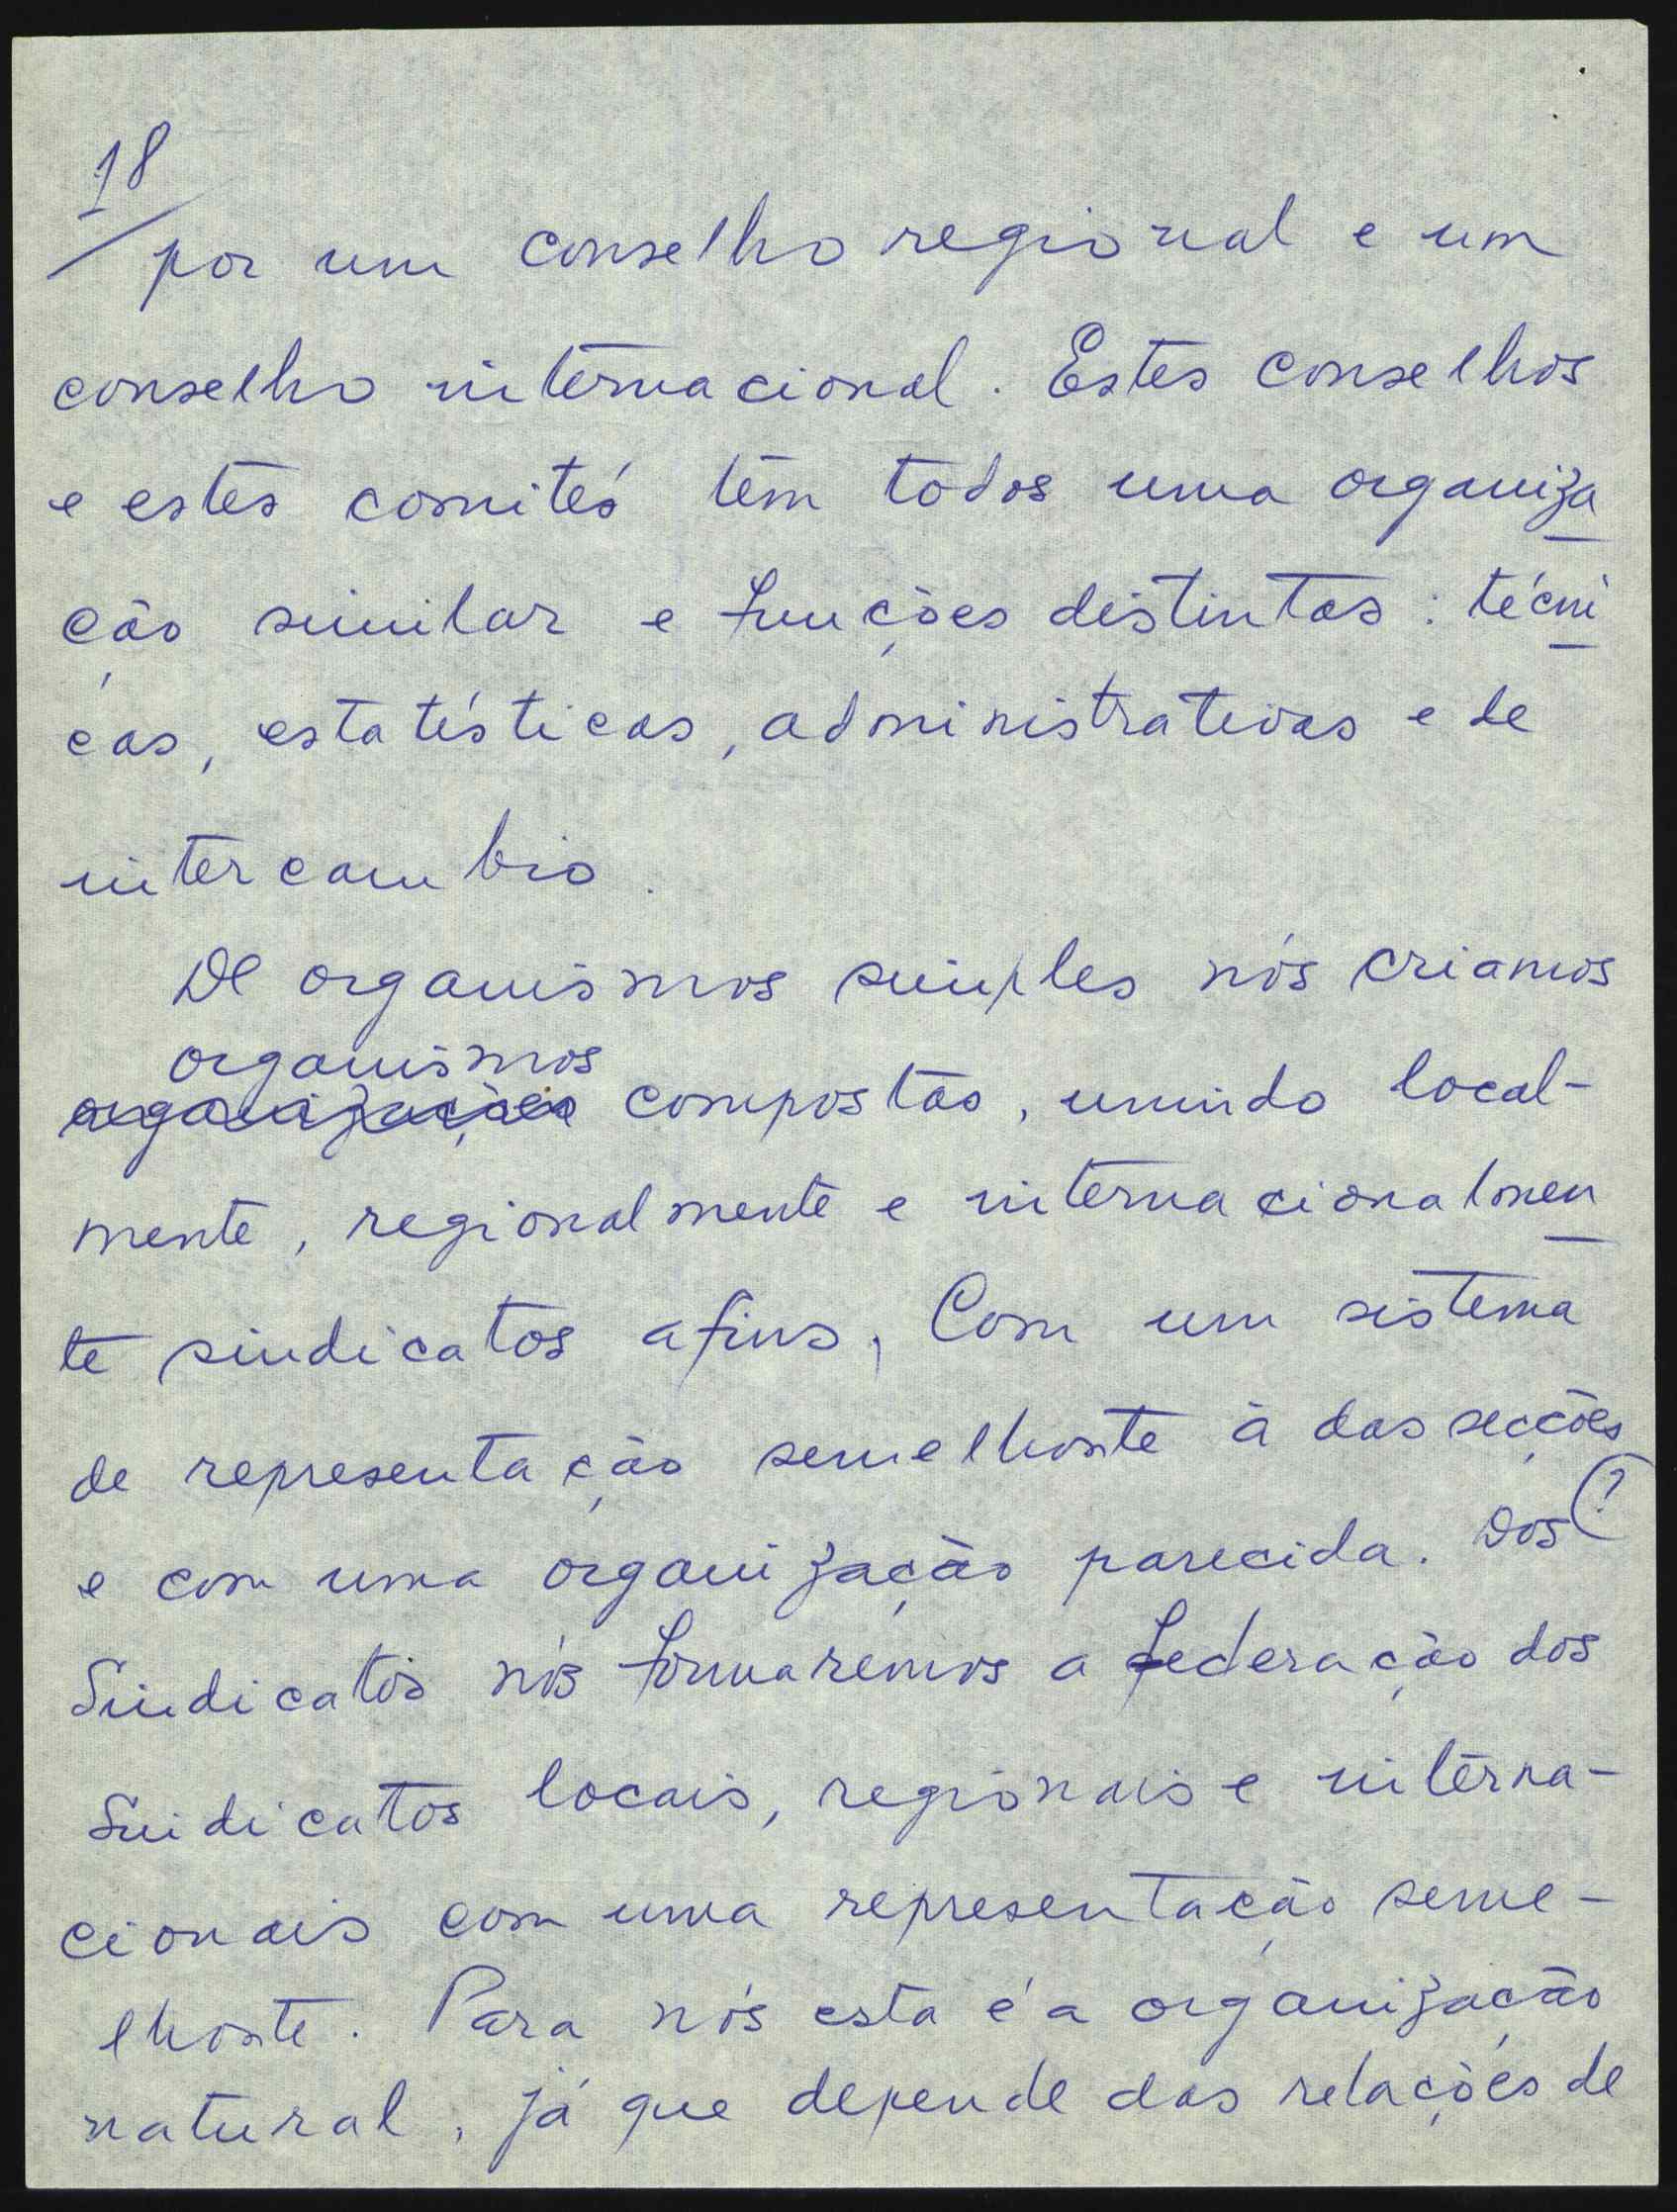 18
por um conselho regional e um
conselho internacional. Estes conselhos
e estes comités têm todos uma organiza
ção similar e funções distintas: técni
cas, estatísticas, administrativas e de
intercambio.
De organismos simples nós criamos
organismos
organizações compostas, unindo local-
mente, regionalmente e internacionalmen
te sindicatos afins, Com um sistema
de representação semelhante à das secções
e com uma organização parecida. Dos (?
Sindicatos nós formaremos a federação dos
Sindicatos locais, regionais e interna-
cionais com uma representação seme-
lhante. Para nós esta é a organização
natural, já que depende das relações de